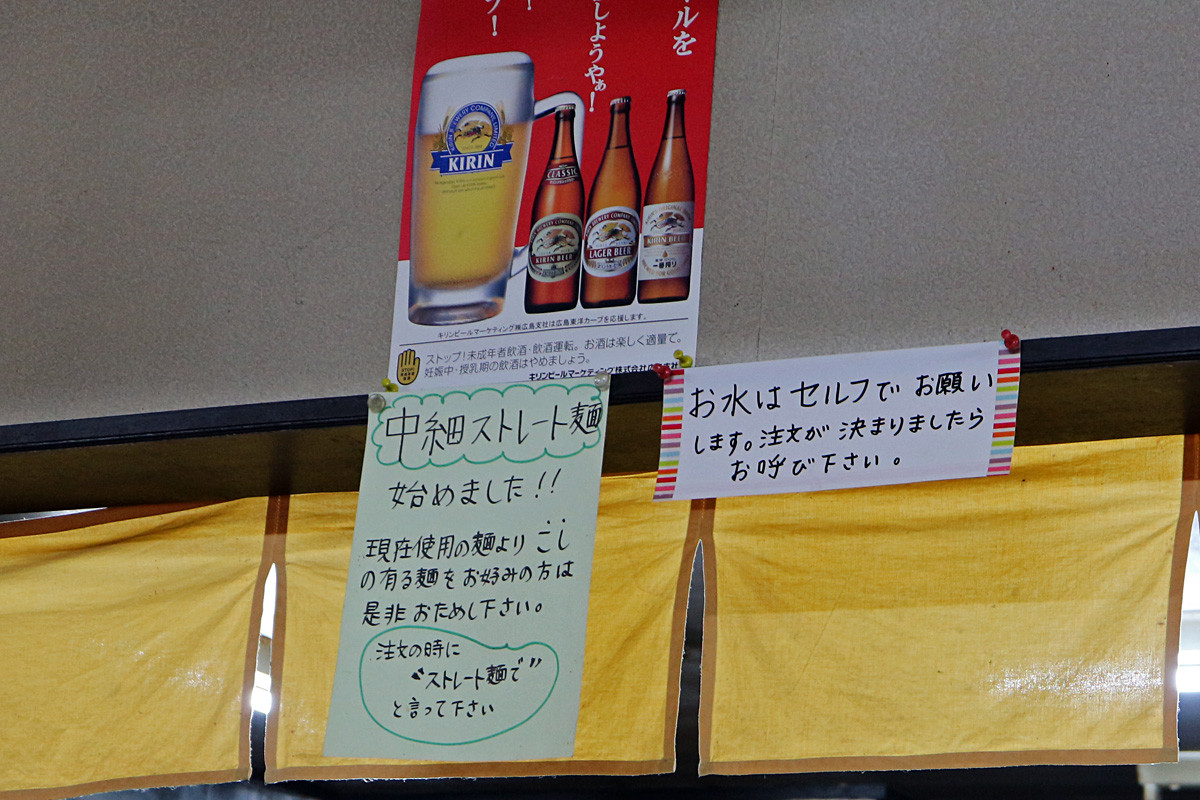 ルを
しようやぁ!
KIRIN
CLASSIC
KIRIN BEER
LAGER BEER
KIRIN BEER
一番搾り
キリンビールマーケティング㈱広島支社は広島東洋カープを応援します。
ストップ!未成年者飲酒・飲酒運転。お酒は楽しく適量で。
妊娠中・授乳期の飲酒はやめましょう。
キリンビールマーケティング株式会社
中細ストレート麺
始めました!!
現在使用の麺より こし
の有る麺を お好みの方は
是非 おためし下さい。
注文の時に
“ストレート麺で”
と言って下さい
お水は セルフで お願い
します。注文が 決まりましたら
お呼び下さい。